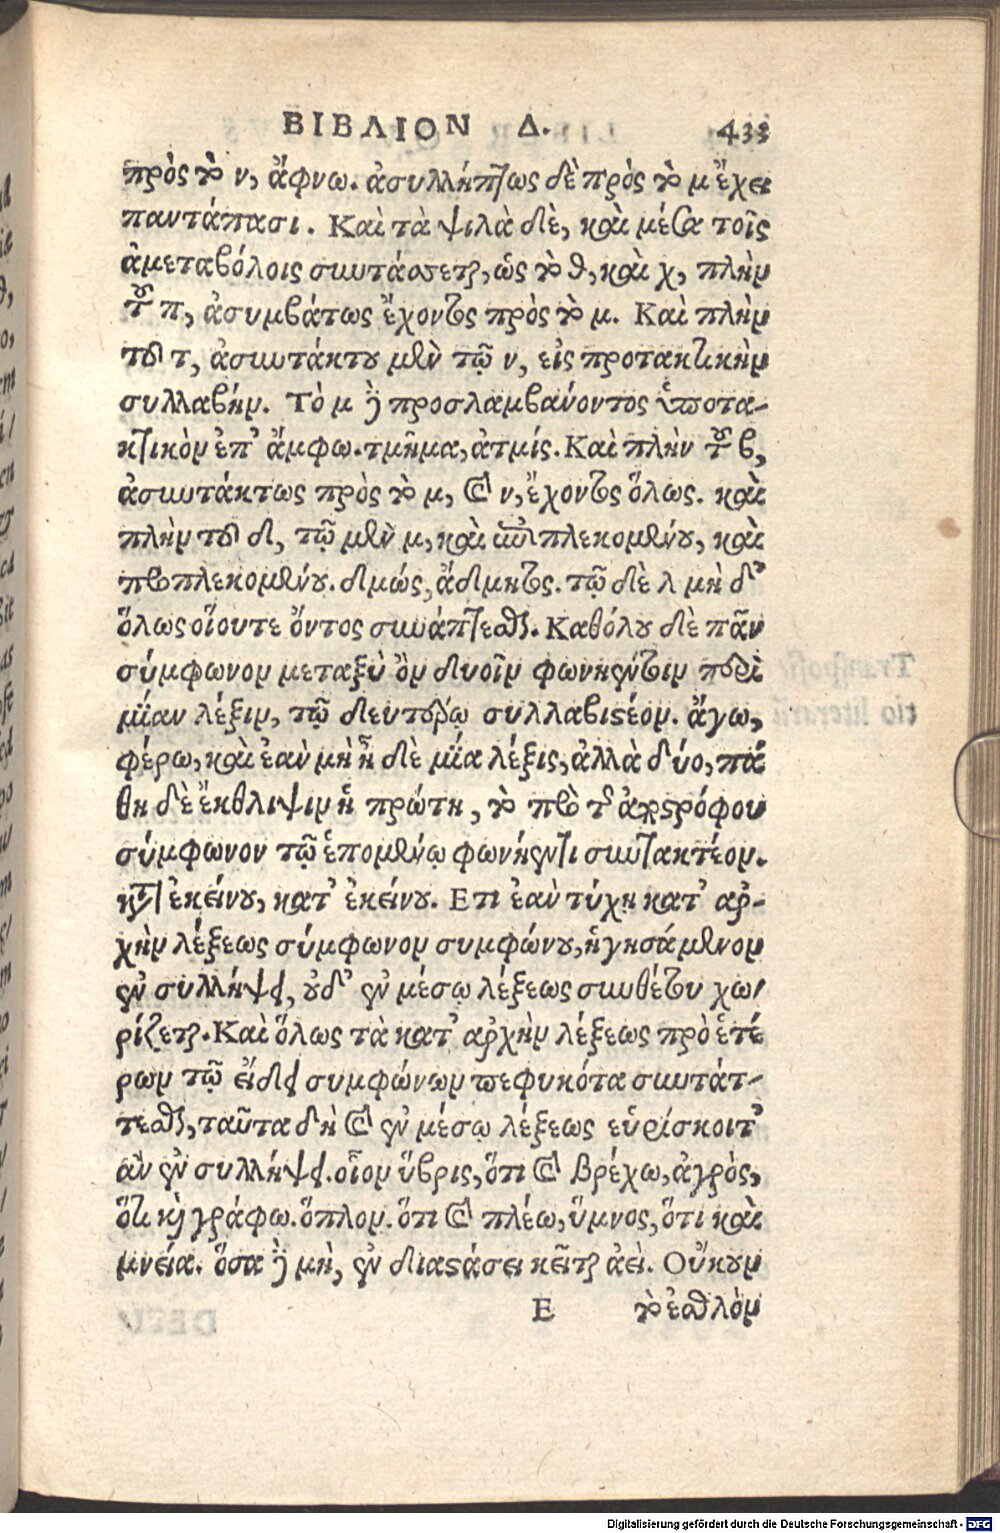 ΒΙΒΛΙΟΝ Δ. 433
πρὸς τὸ ν, ἄφνω. ἀσυλλήπτως δὲ πρὸς τὸ μ ἔχει
παντάπασι. Καὶ τὰ ψιλὰ δὲ, καὶ μέσα τοῖς
ἀμεταβόλοις συντάσσεται, ὡς τὸ θ, καὶ χ, πλὴν
τοῦ π, ἀσυμβάτως ἔχοντος πρὸς τὸ μ. Καὶ πλὴν
τοῦ τ, ἀσυντάκτου μὲν τῷ ν, εἰς προτακτικὴν
συλλαβήν. Τὸ μ δὲ προσλαμβάνοντος ὑποτα-
κτικὸν ἐπ' ἄμφω. τμῆμα, ἀτμίς. Καὶ πλὴν τοῦ β,
ἀσυντάκτως πρὸς τὸ μ, καὶ ν, ἔχοντος ὅλως. καὶ
πλὴν τοῦ δ, τῷ μὲν μ, καὶ ν πλεκομένου, καὶ
πλεκομένου. δμώς, ἄδμητος. τῷ δὲ λ μὴ δ'
ὅλως οἵουτε ὄντος συνάπτεσθαι. Καθόλου δὲ πᾶν
σύμφωνον μεταξὺ ὂν δυοῖν φωνηέντοιν περὶ
μίαν λέξιν, τῷ δευτέρῳ συλλαβιστέον. ἄγω,
φέρω, καὶ ἐὰν μὴ ᾖ δὲ μία λέξις, ἀλλὰ δύο, πά
θη δὲ ἔκθλιψιν ἡ πρώτη, τὸ πρὸ τῆς ἀποστρόφου
σύμφωνον τῷ ἑπομένῳ φωνήεντι συντακτέον.
κατ' ἐκείνου, κατ' ἐκείνου. Ετι ἐὰν τύχῃ κατ' ἀρ-
χὴν λέξεως σύμφωνον συμφώνου, ἡγησάμενον
ἐν συλλήψει, οὐδ' ἐν μέσῳ λέξεως συνθέτου χω/
ρίζεται. Καὶ ὅλως τὰ κατ' ἀρχὴν λέξεως πρὸ ἑτέ
ρων τῷ εἴδει συμφώνων πεφυκότα συντάτ-
τεσθαι, ταῦτα δὴ καὶ ἐν μέσῳ λέξεως εὑρίσκοιτ'
ἂν ἐν συλλήψει. οἷον ὕβρις, ὅτι καὶ βρέχω, ἀγρὸς,
ὅτι καὶ γράφω. ὅπλον. ὅτι καὶ πλέω, ὕμνος, ὅτι καὶ
μνεία. ὅσα δὲ μὴ, ἐν διαστάσει κεῖται ἀεὶ. Οὔκουν
E τὸ ἐσθλὸν
Digitalisierung gefördert durch die Deutsche Forschungsgemeinschaft - DFG